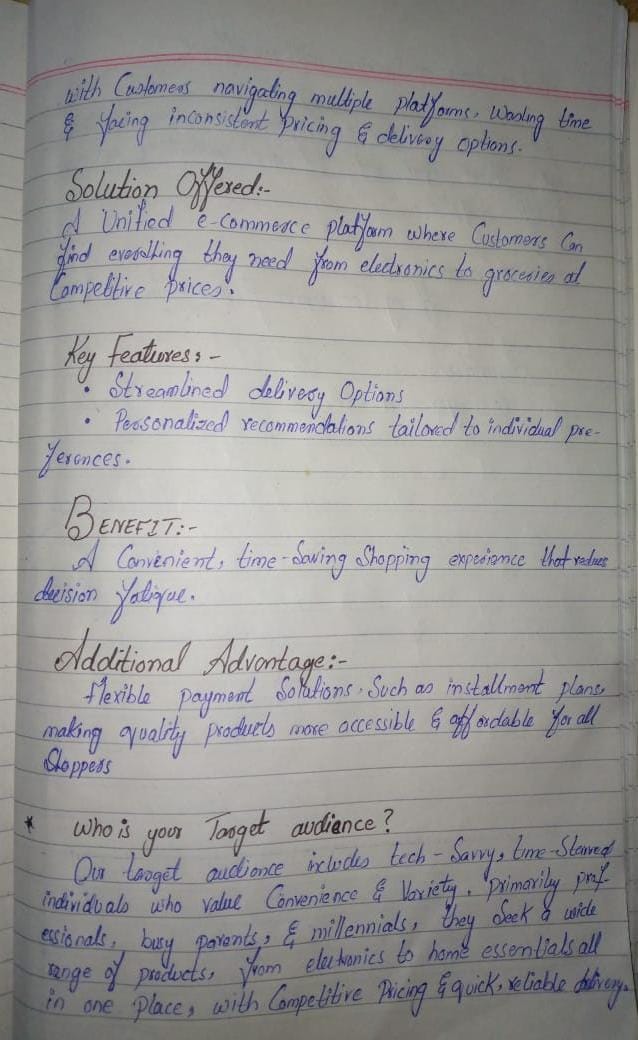 with Customers navigating multiple platforms, wasting time
& facing inconsistent pricing & delivery options.
Solution Offered:-
A Unified e-commerce platform where Customers Can
find everything they need from electronics to groceries at
Competitive prices.
Key Features:-
• Streamlined delivery Options
• Personalized recommendations tailored to individual pre-
ferences.
BENEFIT:-
A Convenient, time-Saving Shopping experience that reduces
decision fatigue.
Additional Advantage:-
flexible payment Solutions, Such as installment plans,
making quality products more accessible & affordable for all
Shoppers
* Who is your Target audience?
Our target audience includes tech-Savvy, time-Starved
individuals who value Convenience & Variety. Primarily prof-
essionals, busy parents, & millennials, they Seek a wide
range of products, from electronics to home essentials all
in one place, with Competitive Pricing & quick, reliable delivery.